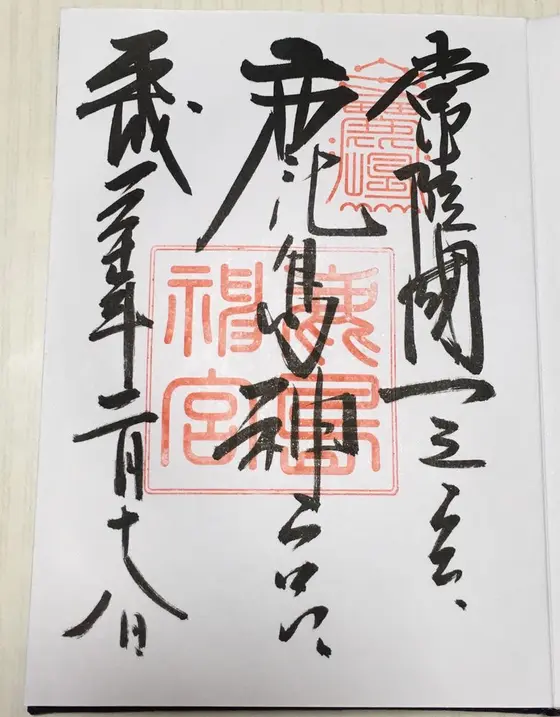 常陸國一之宮
鹿島神宮
平成三十年二月十八日
鹿島神宮